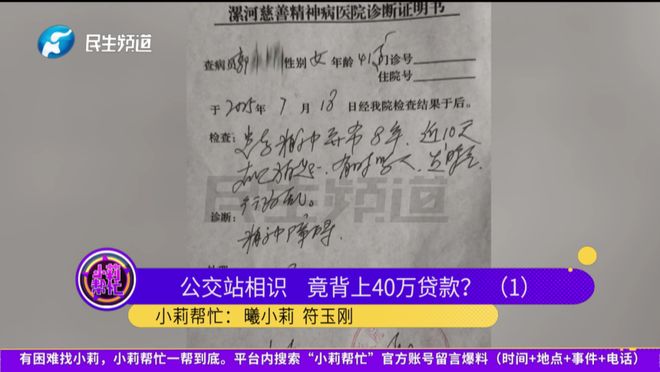 漯河慈善精神病医院诊断证明书
民生频道
查病员郭 性别女 年龄41岁 门诊号
住院号
于2025年7月18日经我院检查结果于后。
检查：患者精神异常8年，近10天
行为乱。
民生频道
诊断：
精神障碍
小莉帮忙
公交站相识 竟背上40万贷款？（1）
小莉帮忙：曦小莉 符玉刚
有困难找小莉，小莉帮忙一帮到底。平台内搜索“小莉帮忙”官方账号留言爆料（时间+地点+事件+电话）